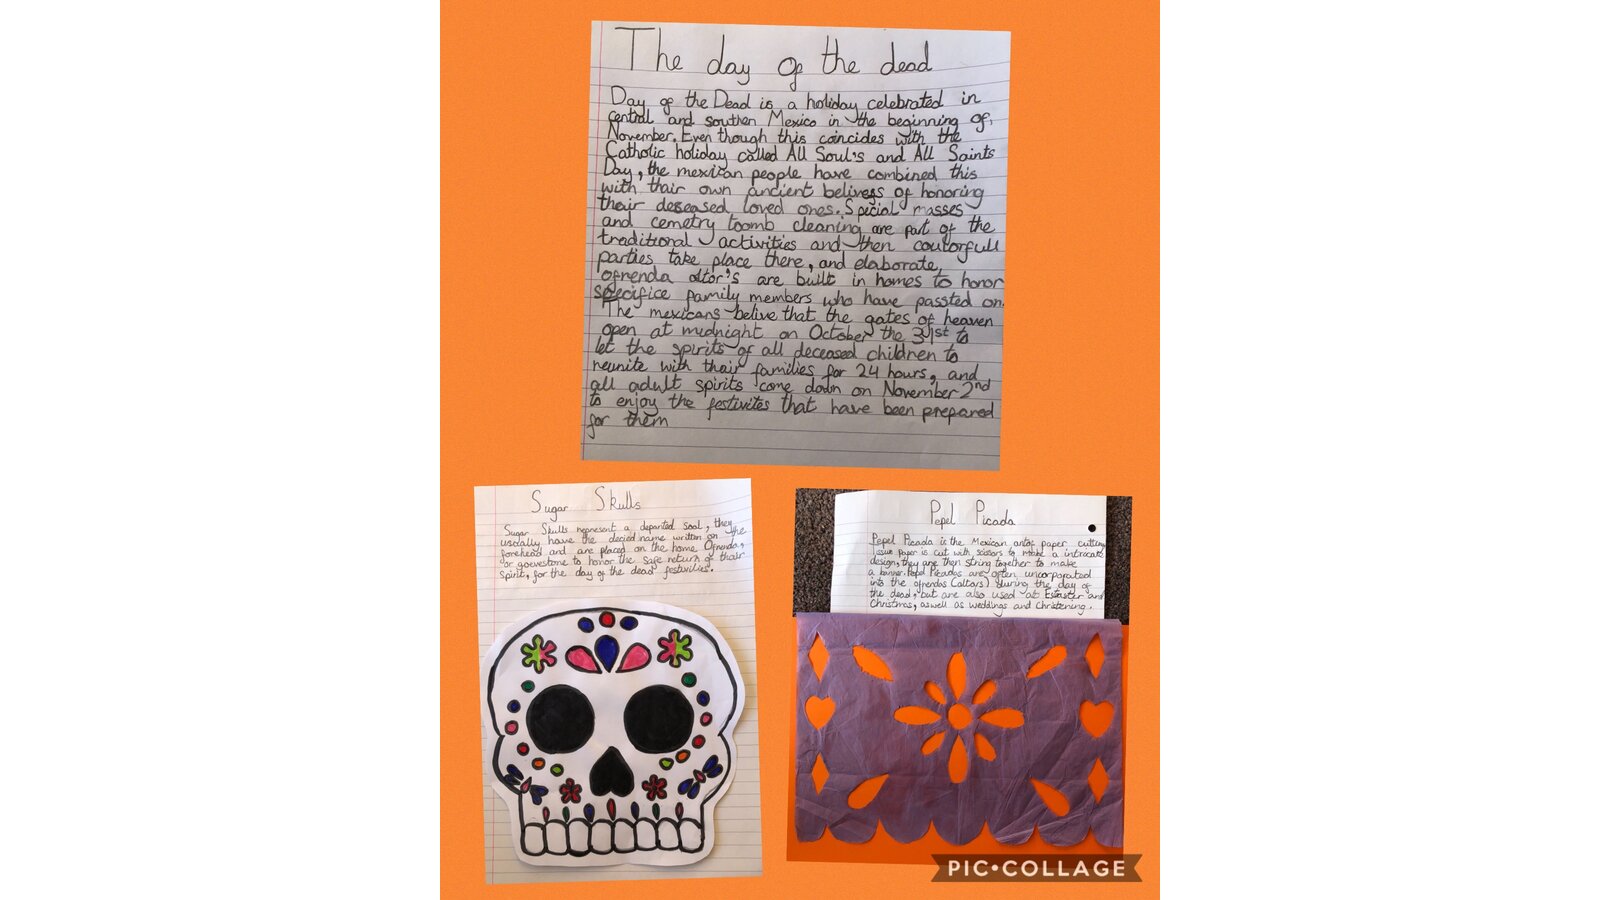 The day of the dead
Day of the Dead is a holiday celebrated in
central and southen Mexico in the beginning of
November. Even though this coincides with the
Catholic holiday called All Soul's and All Saints
Day, the mexican people have combined this
with thair own ancient belivess of honoring
thair deseased loved ones. Special masses
and cemetry toomb cleaning are part of the
traditional activities and then coulorfull
parties take place there, and elaborate
ofrenda altor's are built in homes to honor
specifice family members who have passted on.
The mexicans belive that the gates of heaven
open at midnight on October the 31st to
let the spirits of all deceased children to
reunite with thair families for 24 hours, and
all adult spirits come down on November 2nd
to enjoy the festivites that have been prepared
for them
Sugar Skulls
Sugar Skulls represent a departed soal, they
usually have the decied name written on the
forehead and are placed on the home Ofrenda,
or gavestone to honor the safe return of thair
Spirit, for the day of the dead festivilies.
Pepel Picada
Pepel Picada is the Mexican art of paper cutting
issum paper is cut with scissors to make a introcate
design, they are then string together to make
a banner. Pepel Picadas are often uncorporated
into the ofrendas (altars) during the day of
the dead, but are also used at Estaster and
Christmas, aswell as weddings and christening.
PIC•COLLAGE